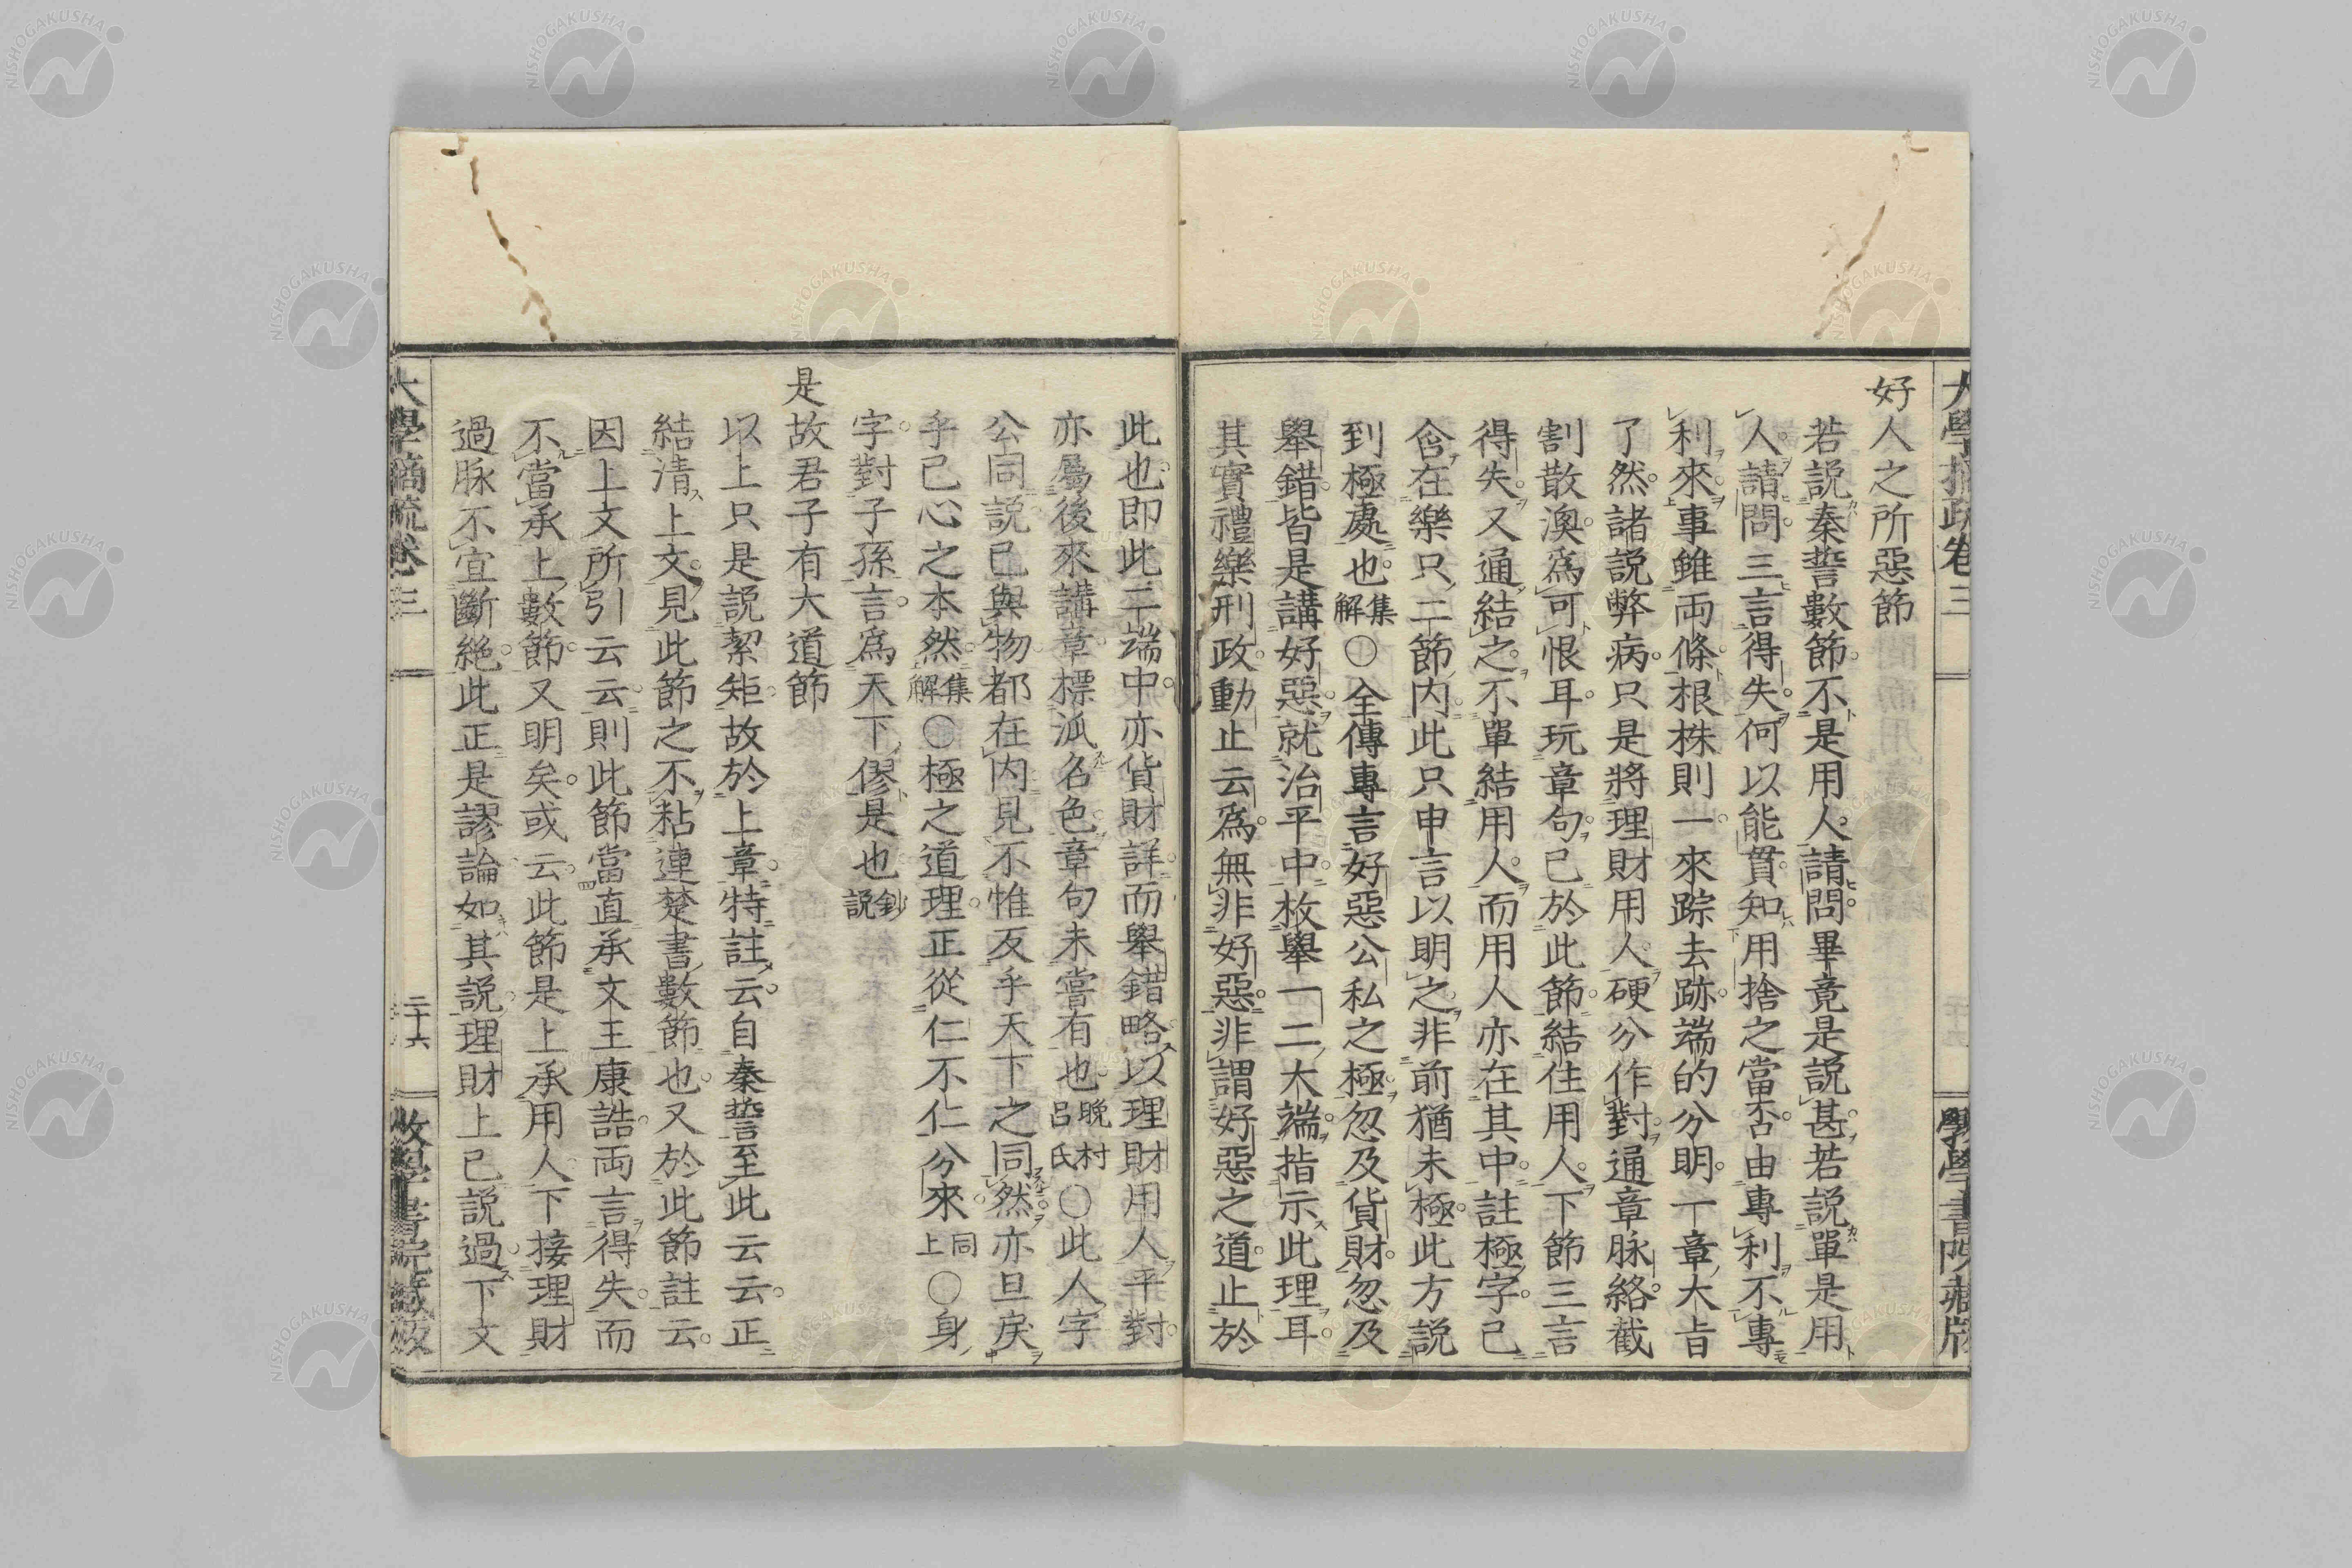 好人之所惡節
若説秦誓數節不是用人請問畢竟是説甚若説單是用
人請問三言得失何以能貫知用捨之當否由專利不專
利來事雖両條根株則一來踪去跡端的分明一章大旨
了然諸説弊病只是將理財用人硬分作對通章脉絡截
割散渙為可恨耳玩章句已於此節結住用人下節三言
得失又通結之不單結用人而用人亦在其中註極字已
含在樂只二節内此只申言以明之非前猶未極此方説
到極處也集解〇全傳專言好惡公私之極忽及貨財忽及
舉錯皆是講好惡就治平中枚舉一二大端指示此理耳
其實禮樂刑政動止云為無非好惡非謂好惡之道止於
此也即此二端中亦貨財詳而舉錯略以理財用人平對
亦屬後來講章標派名色章句未嘗有也晩村呂氏〇此人字
公同説已與物都在内見不惟反乎天下之同然亦且戻
乎己心之本然集解〇極之道理正從仁不仁分來同上〇身
字對子孫言為天下僇是也鈔説
是故君子有大道節
以上只是説絜矩故於上章特註云自秦誓至此云云正
結清上文見此節之不粘連楚書數節也又於此節註云
因上文所引云云則此節當直承文王康誥両言得失而
不當承上數節又明矣或云此節是上承用人下接理財
過脉不宜斷絶此正是謬論如其説理財上已説過下文
大學摘疏卷三
二十六